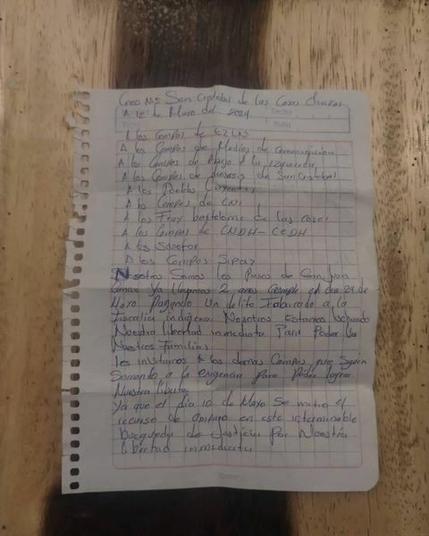 San Cristobal de las Casas Chiapas
A de Mayo del 2024
A los Compas de EZLN
A los Compas de Medios de comunicación
A los Compas de a la izquierda
A los Compas de diocesis de San Cristobal
A los Pueblos
A los Compas de CNI
A los Fray bartolome de las casas
A los Compas de CNDH-CEDH
A los
A los Compas Sipaz
Nosotros Somos los Presos de San Juan
ya llegamos 2 años el dia 29 de
Mayo Pagando Un delito Fabricado a la
Fiscalia indigena Nosotros Estamos
Nuestra libertad inmediata Para Poder
Nuestros Familias
les invitamos A los demas Compas que Sigan
Sumando a la exigencia para Poder lograr
Nuestra libertad
Ya que el dia 10 de Mayo Se metio el
recurso de en este interminable
busqueda de Justicia Por Nuestra
libertad inmediata